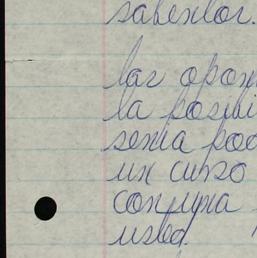 saberlor.
lar opon
la posibi
senia poo
un curso
con una
usted.